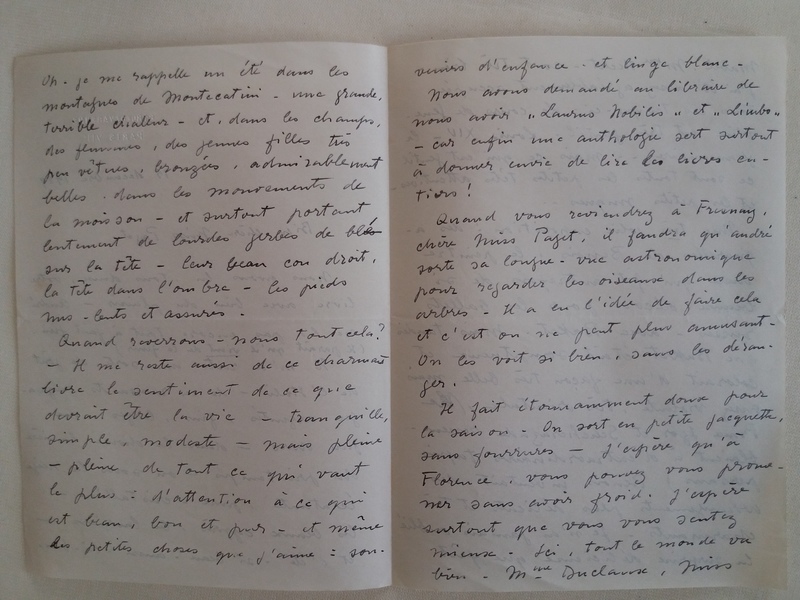 Oh. je me rappelle un été dans les
montagnes de Montecatini - une grande,
terrible chaleur - et, dans les champs,
des femmes, des jeunes filles très
peu vêtues, bronzées, admirablement
belles dans les mouvements de
la moisson - et surtout portant
lentement de lourdes gerbes de blé
sur la tête - leur beau cou droit,
la tête dans l'ombre - les pieds
nus - lents et assurés.
Quand reverrons-nous tout cela?
- Il me reste aussi de ce charmant
livre le sentiment de ce que
devrait être la vie - tranquille,
simple, modeste - mais pleine
- pleine de tout ce qui vaut
le plus : d'attention à ce qui
est beau, bon et pur - et même
les petites choses que j'aime : sou-
venirs d'enfance - et linge blanc -
Nous avons demandé au libraire de
nous avoir "Laurus Nobilis" et "Limbo"
- car enfin une anthologie sert surtout
à donner envie de lire les livres en-
tiers!
Quand vous reviendrez à Fresnay,
chère Miss Paget, il faudra qu'andré
sorte sa longue-vue astronomique
pour regarder les oiseaux dans les
arbres - Il a eu l'idée de faire cela
et c'est on ne peut plus amusant -
On les voit si bien, sans les déran-
ger.
Il fait étonnamment doux pour
la saison - On sort en petite jaquette,
sans fourrures - J'espère qu'à
Florence, vous pouvez vous prome-
ner sans avoir froid. J'espère
surtout que vous vous sentez
mieux - Ici, tout le monde va
bien - Mme Duclaux, Miss